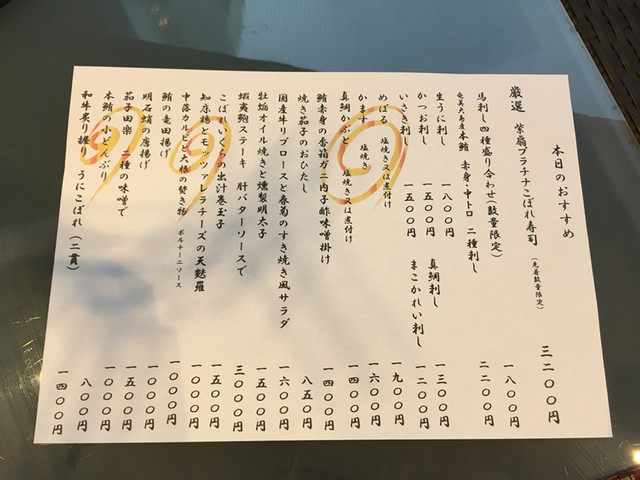 本日のおすすめ
厳選 紫扇プラチナこぼれ寿司(先着数量限定) 三二〇〇円
馬刺し四種盛り合わせ(数量限定) 一八〇〇円
奄美大島産本鮪 赤身・中トロ 二種刺し 二二〇〇円
生うに刺し 一八〇〇円
かつお刺し 一五〇〇円 真鯛刺し 一三〇〇円
いさき刺し 一五〇〇円 まこかれい刺し 一二〇〇円
めばる 塩焼き又は煮付け 一九〇〇円
かます 塩焼き 一六〇〇円
真鯛かぶと 塩焼き又は煮付け 一四〇〇円
鮪赤身の香箱ガニ内子酢味噌掛け 一四〇〇円
焼き茄子のおひたし 八五〇円
国産牛リブロースと春菊のすき焼き風サラダ 一六〇〇円
牡蠣オイル焼きと燻製明太子 一五〇〇円
蝦夷鮑ステーキ 肝バターソースで 三〇〇〇円
こぼれいくらの出汁巻玉子 一五〇〇円
知床鶏とモッツァレラチーズの天麩羅 一〇〇〇円
中落カルビと大根の焚き物 ポルチーニソース 一〇〇〇円
鮪の竜田揚げ 一〇〇〇円
明石蛸の唐揚げ 一〇〇〇円
茄子田楽 二種の味噌で
本鮪の小どんぶり 八〇〇円
和牛炙り握り うにこぼれ(二貫) 一四〇〇円